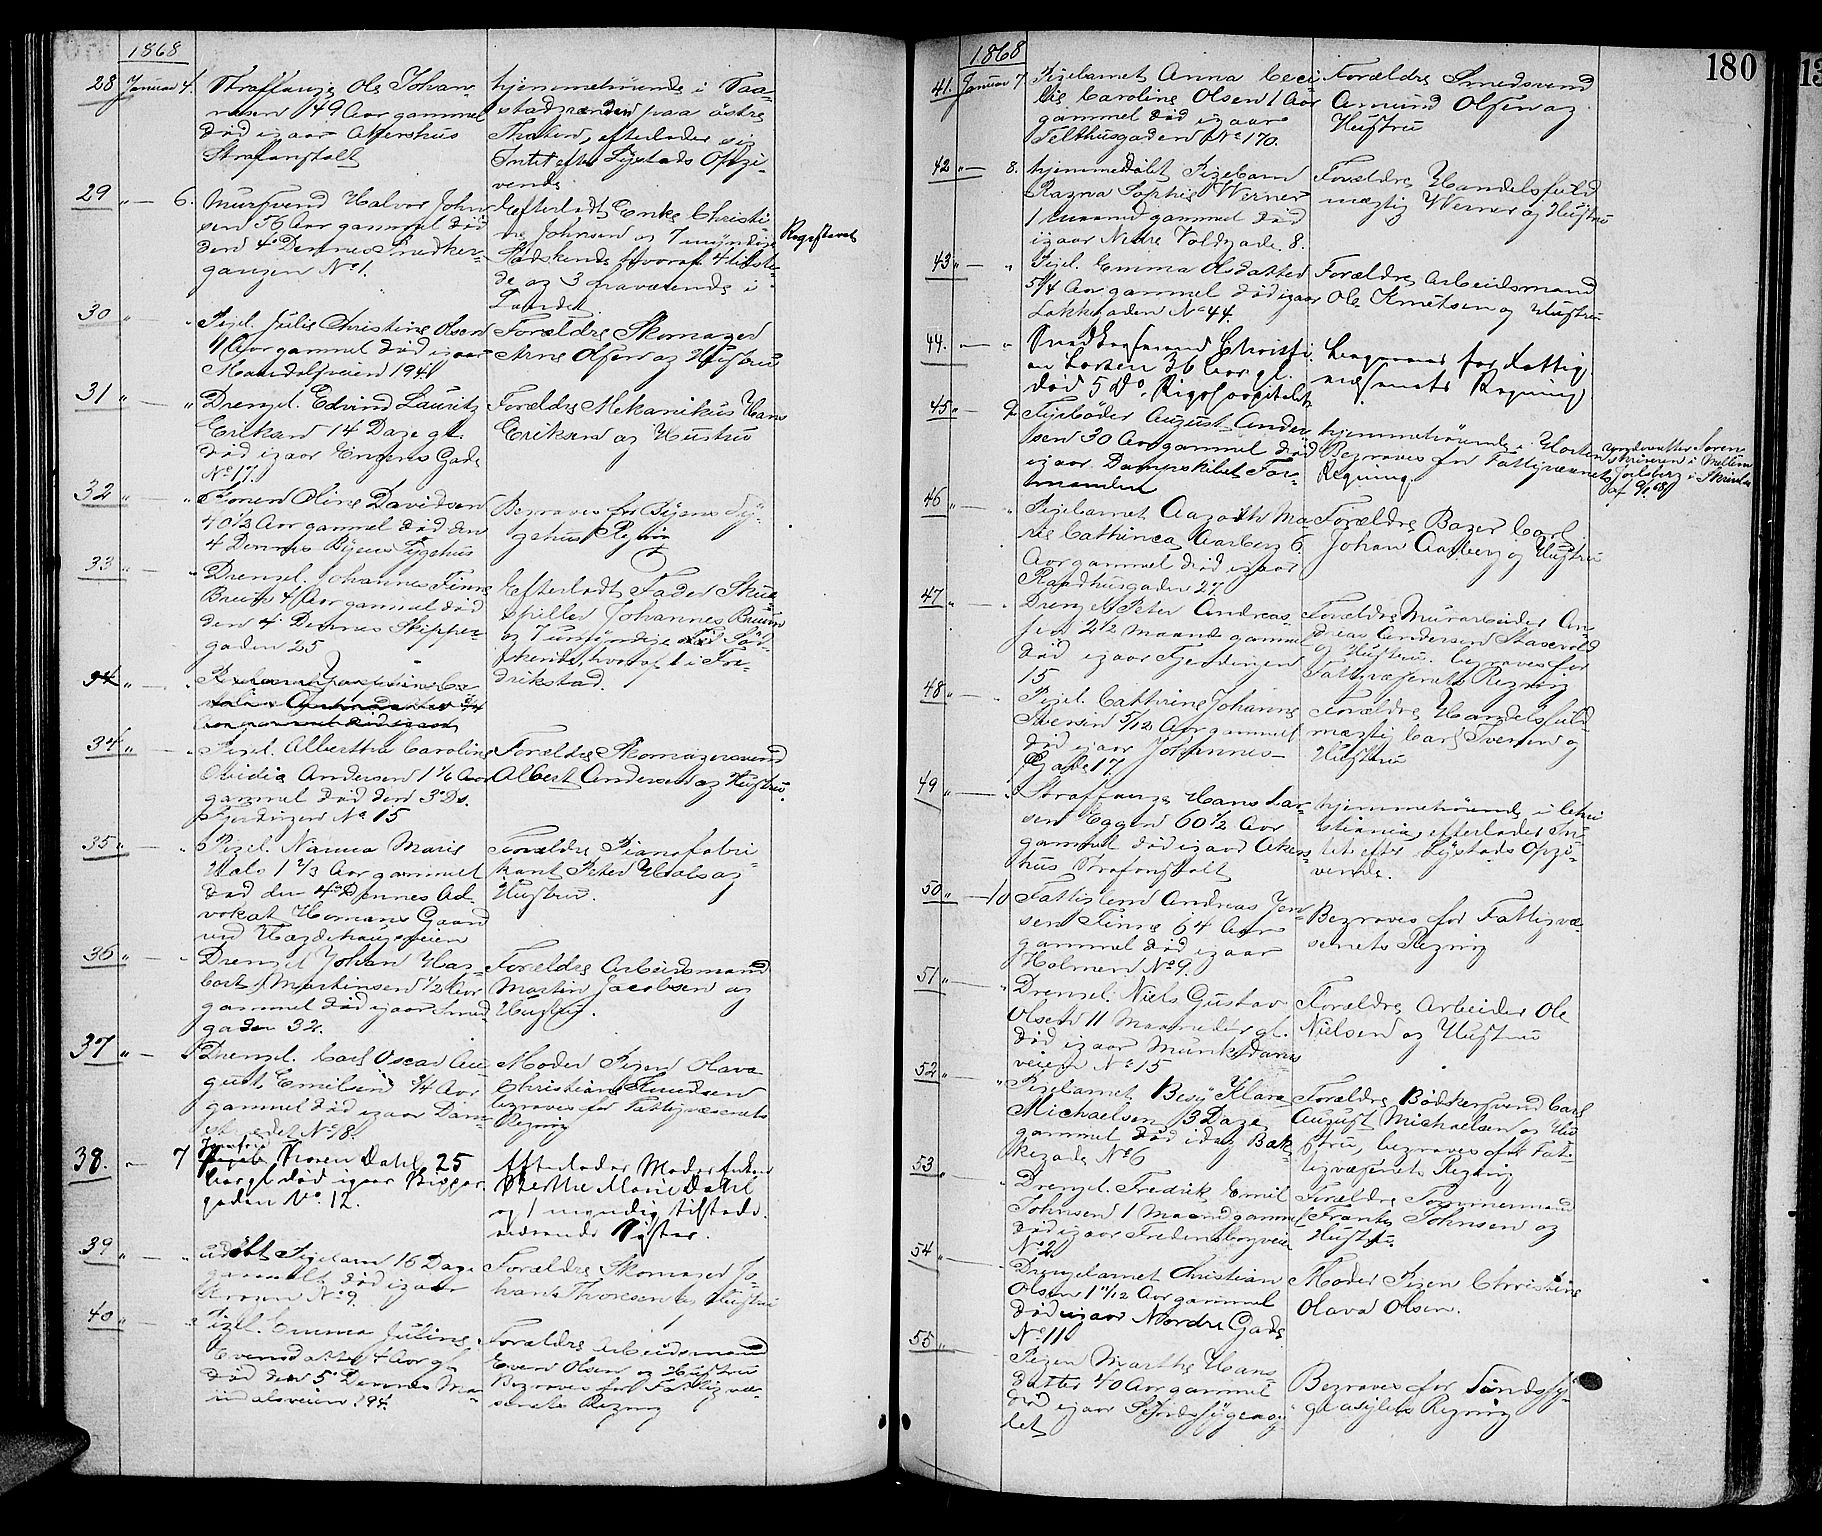 1868
28 Januar 4. Straffange Ole Johan-
nesen 49 Aar gammel
død igaar Akershus
Strafanstalt
hjemmehørende i
paa østre
Thoten, efterlader sig
Intet efter Systads Opgi-
vende
29 " — 6. Mursvend Halvor John-
sen 56 Aar gammel død
den 4de Dennes Snedker-
gangen No 1.
Efterladt Enke Christi-
ne Johnsen og 7 myndige
Sødskende hvoraf 4 tilste-
de og 3 fraværende i
Landet.
Registeret
30 " — " Pigel. Julie Christine Olsen
4 Aar gammel død igaar
Maridalsveien 194
Forældre Skomager
Arne Olsen og Hustru
31 " — " Drengel. Edvind Lauritz
Eriksen 14 Dage gl.
død igaar Engens Gade
No 17.
Forældre Mekanikus Hans
Eriksen og Hustru
32 " — " Konen Oline Davidsen
40 1/2 Aar gammel død den
4 Dennes Byens Sygehus
Begraves for Byens Sy-
gehus Regning
33 " — " Drengel. Johannes Finne
Bruun 4 Aar gammel død
den 4de Dennes Skipper-
gaden 25
Efterladt Fader Skue-
spiller Johannes Bruun
og 7 umyndige Sød-
skende, hvoraf 1 i Fre-
drikstad.
34 " — "
Aar gammel død igaar
34 " — " Pigel. Alberthe Caroline
Ovidia Andersen 1 1/6 Aar
gammel død den 3de Ds.
Fjerdingen No 15
Forældre Skomagersvend
Albert Andersen og Hustru.
35 " — " Pigel. Nanna Marie
Hals 1 2/3 Aar gammel
død den 4de Dennes Ad-
vokat Homans Gaard
ved Hægdehaugsveien
Forældre Pianofabri-
kant Peter Hals og
Hustru.
36 " — " Drengel. Johan Har-
bert Martinsen 1/2 Aar
gammel død igaar Smed-
gaden 32.
Forældre Arbeidsmand
Martin Jacobsen og
Hustru.
37 " — " Drengel. Carl Oscar Au-
gust Emilsen 3/4 Aar
gammel død igaar Dam-
strædet No 8.
Moder Pigen Olava
Christiane Knudsen
begraves for Fattigvæsenets
Regning
38. " — 7 Jomfru Karen Dahl 25
Aar gl død igaar Bispe-
gaden No. 12.
Efterlader Moder Enke
Berthe Marie Dahl
og 1 myndig tilstede-
værende Søster.
39 " — " udøbt Pigebarn 16 Dage
gammelt død igaar
Krogen No 9.
Forældre Skomager Jo-
hans Thoresen og Hustru
40 " — " Pigel. Emma Juline
Evensdatter 4 Aar gl
død den 5te Dennes Ma-
ridalsveien 194.
Forældre Arbeidsmand
Even Olsen og Hustru
Begraves for Fattigvæ-
senets Regning
1868
180
41. Januar 7 Pigebarnet Anna Ceci-
lie Caroline Olsen 1 Aar
gammel død igaar
Telthusgaden No 170.
Forældre Smedsvend
Amund Olsen og
Hustru
42 " — 8. hjemmedøbt Pigebarn
Ragna Sophie Werner
1 Maaned gammel død
igaar Nedre Voldgade 8.
Forældre Handelsfuld-
mægtig Werner og Hustru
43 " — " Pigel. Emma Olsdatter
5/4 Aar gammel død igaar
Lakkegaden No 44.
Forældre Arbeidsmand
Ole Knutsen og Hustru
44. " — " Christi-
an Larsen 36 Aar gl.
død 5 Ds. Rigshospitalet
Begraves for Fattig-
væsenets Regning
45 " — 9 Fyrbøder August Ander-
sen 30 Aar gammel død
igaar Dampskibet For-
manden
hjemmehørende i Horten
Begraves for Fattigvæsenets
Regning.
underrettet Soren-
skriveren i Mellem
Jarlsberg i Skrivelse
af 9/1 68
46 " — " Pigebarnet Aagothe Ma-
rie Cathinca Aarberg 6
Aar gammel død igaar
Raadhusgaden 27
Forældre Bager Carl
Johan Aarberg og Hustru
47 " — " Drengel Peter Andreas-
sen 2 1/2 Maaned gammel
død igaar Fjerdingen
15
Forældre Murarbeider An-
dreas Andersen Stasevold
og Hustru. begraves for
Fattigvæsenets Regning
48 " — " Pigel. Cathrine Johanne
Iversen 5/12 Aar gammel
død igaar Johannes-
Gade 17.
Forældre Handelsfuld-
mægtig Carl Iversen og
Hustru
49 " — " Straffange Hans Lar-
sen Eggen 60 1/2 Aar
gammel død igaar Akers-
hus Strafanstalt
hjemmehørende i Chri-
stiania, efterlader In-
tet efter Systads Opgi-
vende.
50 " — 10 Fattiglem Andreas Jen-
sen Finne 64 Aar
gammel død igaar
Holmen No 9.
Begraves for Fattigvæ-
senets Regning
51 " — " Drengel. Niels Gustav
Olsen 11 Maaneder gl.
død igaar Munkedams-
veien No 15
Forældre Arbeider Ole
Nielsen og Hustru
52 " — " Pigebarnet Besy Klara
Michaelsen 13 Dage
gammel død idag Bak-
kegade No 6
Forældre Bødkersvend Carl
August Michaelsen og Hu-
stru, begraves for Fat-
tigvæsenets Regning
53 " Drengel. Fredrik Emil
Johnsen 1 Maaned gammel
død igaar Fredensborgveien
No 2
Forældre Tømmermand
Frants Johnsen og
Hustru.
54 " — " Drengebarnet Christian
Olsen 1 11/12 Aar gammel
død igaar Nordre Gade
No 11
Moder Pigen Christine
Olava Olsen.
55 " Pigen Marthe Hans-
datter 40 Aar gammel
død igaar Sindssygeasy-
let
Begraves for Sindssy-
geasylets Regning